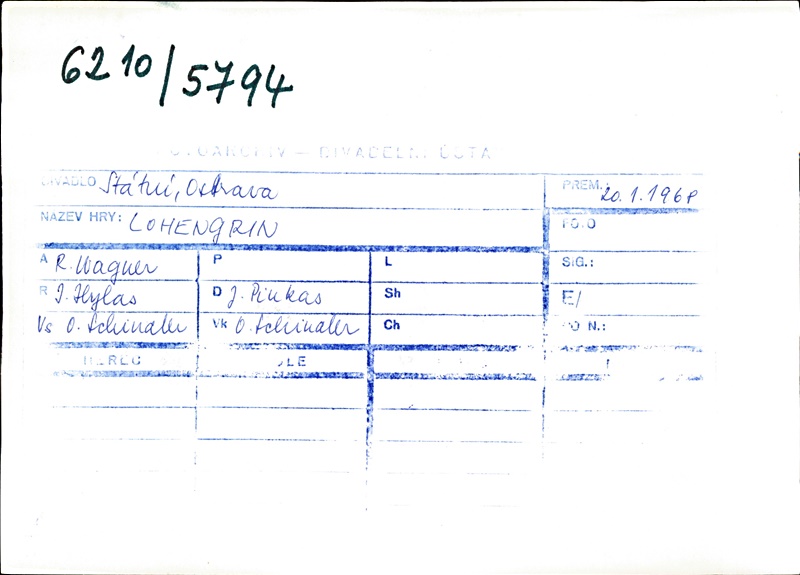 6210/5794
DIVADELNÍ ÚSTAV
DIVADLO Státní, Ostrava PREM.: 20.1.1968
NÁZEV HRY: LOHENGRIN FOTO
A R. Wagner P L SIG.:
R I. Hylas D J. Pinkas Sh E/
Vs O. Schindler Vk O. Schindler Ch